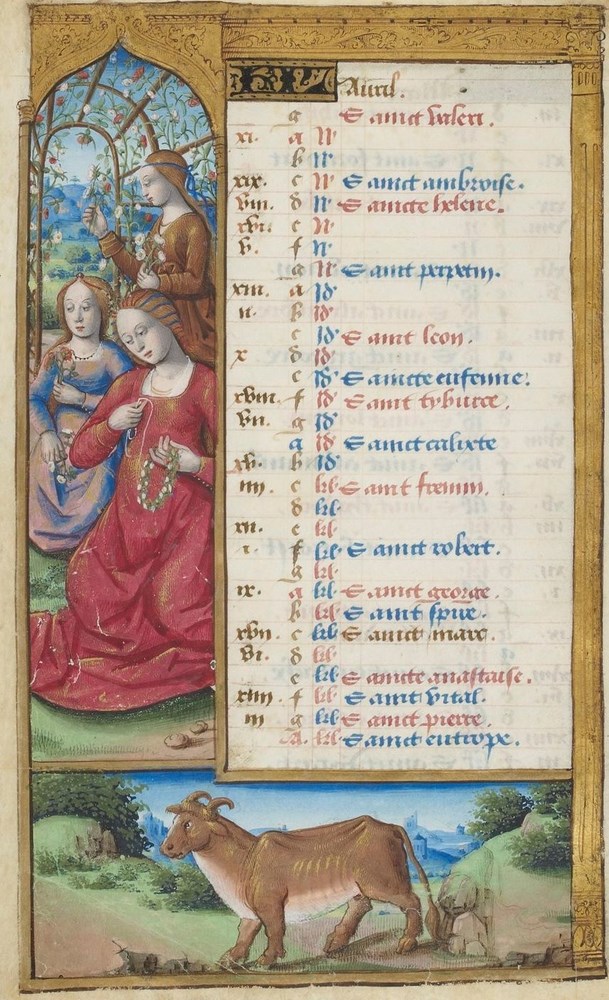 KL Auril.
g Sainct valeri.
xi. a N'
b N'
xix. c N' Sainct ambroise.
viii. d N' Saincte helene.
xvi. e N'
v. f N'
g N' Sainct perpetin.
xiii. a Jd'
ii. b Jd'
c Jd' Sainct leon.
x d Jd'
e Jd' Saincte eufemie.
xviii. f Jd' Sainct tyburce.
vii. g Jd'
a Jd' Sainct calixte
xv. b Jd'
iiii. c kl' Sainct fremin.
d kl'
xii. e kl'
i. f kl' Sainct robert.
g kl'
ix. a kl' Sainct george.
b kl' Sainct spire.
xvii. c kl' Sainct marc.
vi. d kl'
e kl' Saincte anastaise.
xiiii. f kl' Sainct vital.
iii g kl' Sainct pierre.
A. kl' Sainct eutrope.